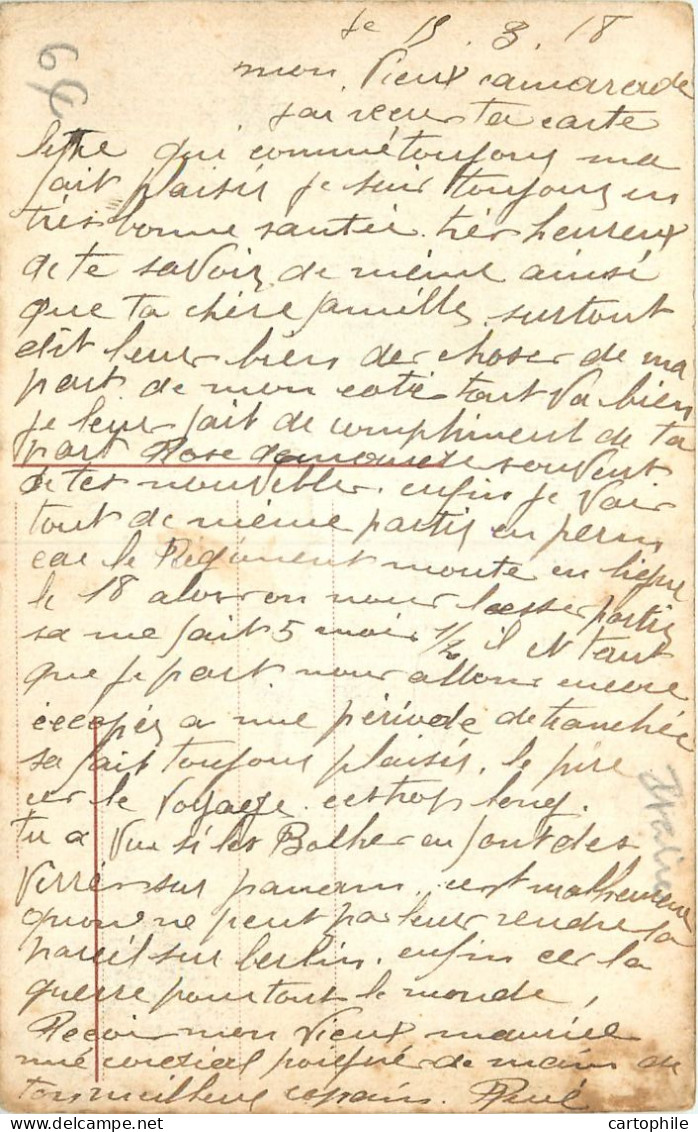 le 15.3.18
mon Vieux camarade
jai reçue ta carte
lettre qui comme toujours ma
fait plaisir je suis toujours en
très bonne santée. très heureux
de te savoir de même ainsi
que ta chère famille, surtout
dit leur bien des choses de ma
part. de mon coté tout va bien
je leur fait de compliment de ta
part Rose demande souvent
de tes nouvelles. enfin je vais
tout de même partir en perm
car le Régiment monte en ligne
le 18 alors on nous laesse partir
sa me fait 5 mois 1/2 il et tant
que je part nous allons encore
à une période de tranchée
sa fait toujours plaisir. le pire
cer le voyage. cestrop long.
tu a vue si les Boches en font des
sur panam. cest malheureux
quon ne peut pas leur rendre sa
pareil sur berlin. enfin cer la
guerre pour tout le monde,
Reçoi mon Vieux maurice
une cordial poigné de main de
ton meilleur copain. René